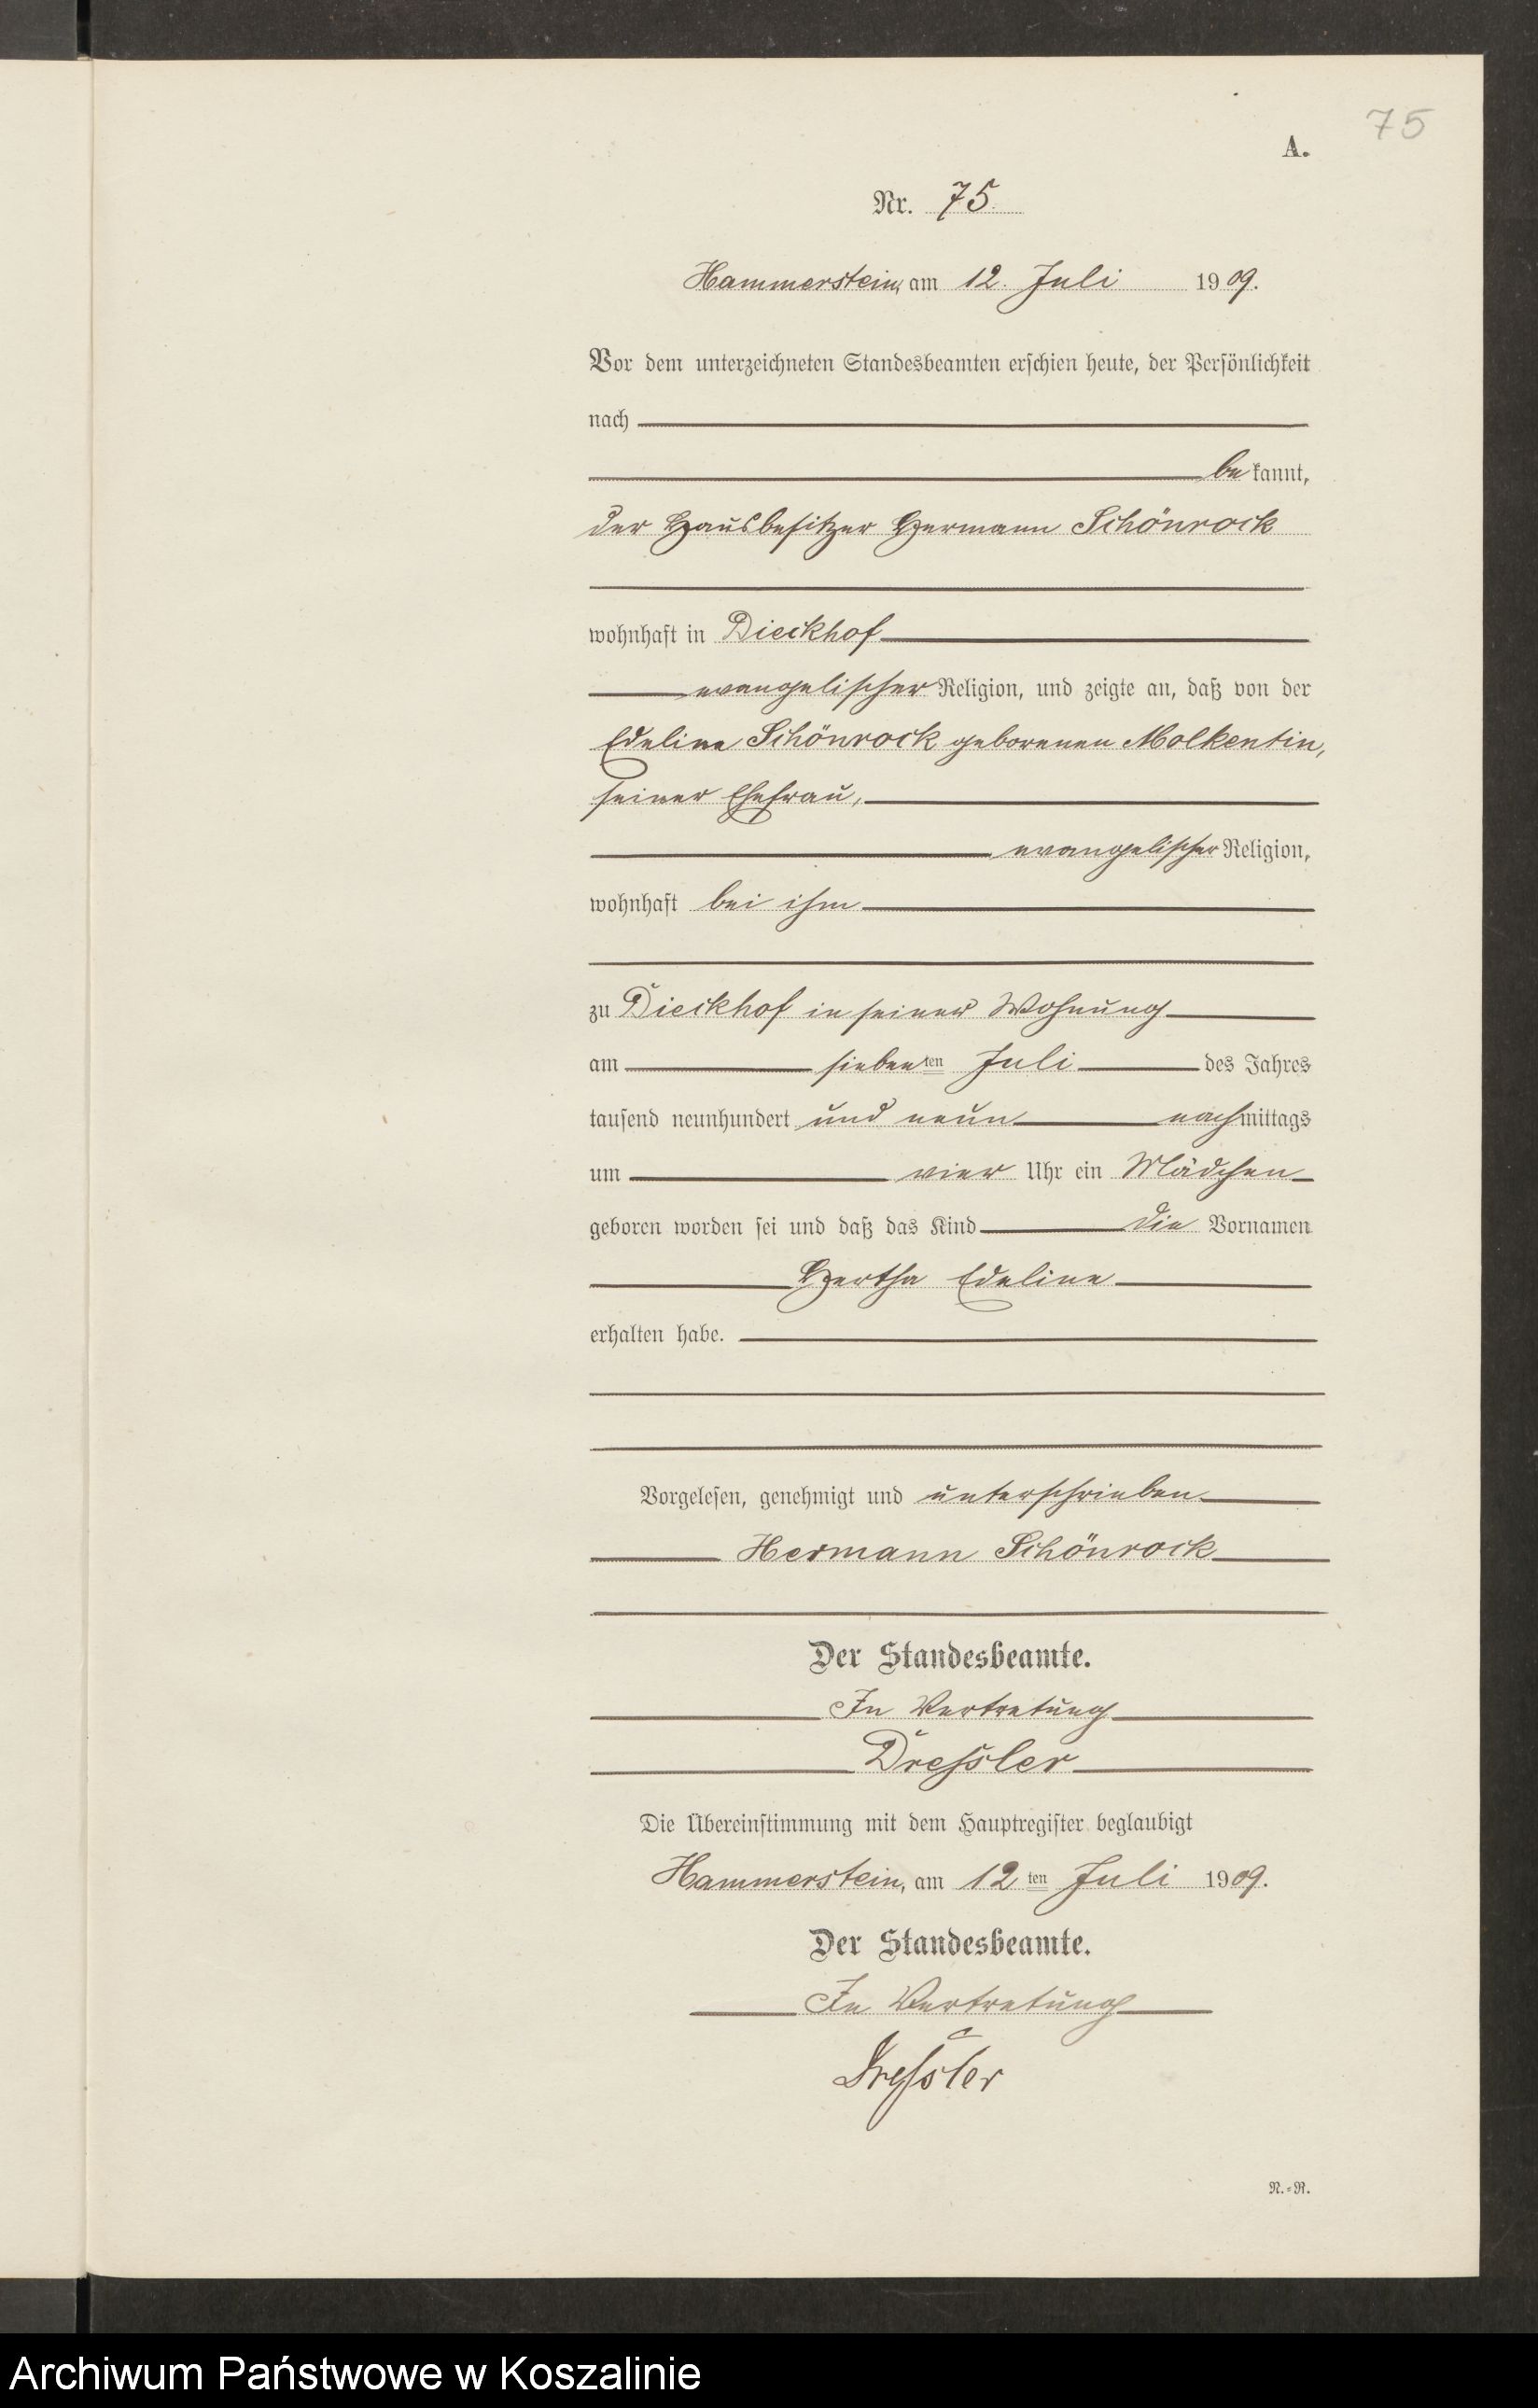 75
A.
Nr. 75.
Hammerstein, am 12. Juli 1909.
Vor dem unterzeichneten Standesbeamten erschien heute, der Persönlichkeit
nach
bekannt,
der Hausbesitzer Hermann Schönrock
wohnhaft in Dieckhof
evangelischer Religion, und zeigte an, daß von der
Edeline Schönrock geborenen Molkentin,
seiner Ehefrau,
evangelischer Religion,
wohnhaft bei ihm
zu Dieckhof in seiner Wohnung
am siebenten Juli des Jahres
tausend neunhundert und neun nachmittags
um vier Uhr ein Mädchen
geboren worden sei und daß das Kind die Vornamen
Hertha Edeline
erhalten habe.
Vorgelesen, genehmigt und unterschrieben
Hermann Schönrock
Der Standesbeamte.
In Vertretung
Dressler
Die Übereinstimmung mit dem Hauptregister beglaubigt
Hammerstein, am 12ten Juli 1909.
Der Standesbeamte.
In Vertretung
Dressler
N.-R.
Archiwum Państwowe w Koszalinie